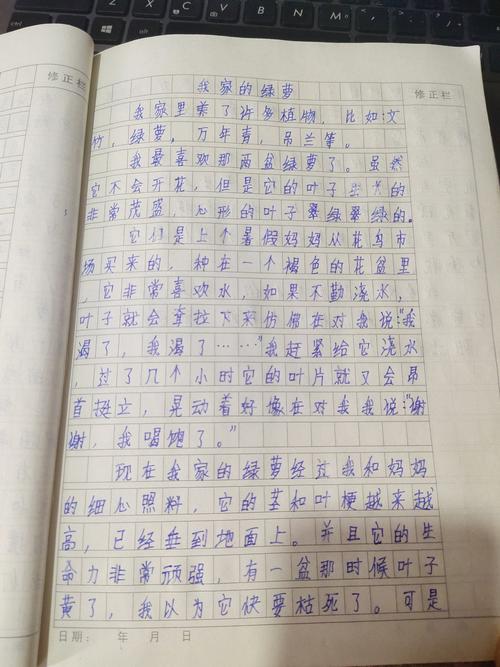 修正栏
修正栏
我家的绿萝
我家里养了许多植物，比如：文
竹，绿萝，万年青，吊兰等。
我最喜欢那两盆绿萝了。虽然
它不会开花，但是它的叶子的
非常茂盛，心形的叶子翠绿翠绿的。
它们是上个暑假妈妈从花鸟市
场买来的，种在一个褐色的花盆里
，它非常喜欢水，如果不勤浇水，
叶子就会耷拉下来仿佛在对我说："我
渴了，我渴了……"我赶紧给它浇水
，过了几个小时它的叶片就又会昂
首挺立，晃动着好像在对我我说："谢
谢，我喝饱了。"
现在我家的绿萝经过我和妈妈
的细心照料，它的茎和叶梗越来越
高，已经垂到地面上。并且它的生
命力非常顽强，有一盆那时候叶子
黄了，我以为它快要枯死了。可是
日期： 年 月 日